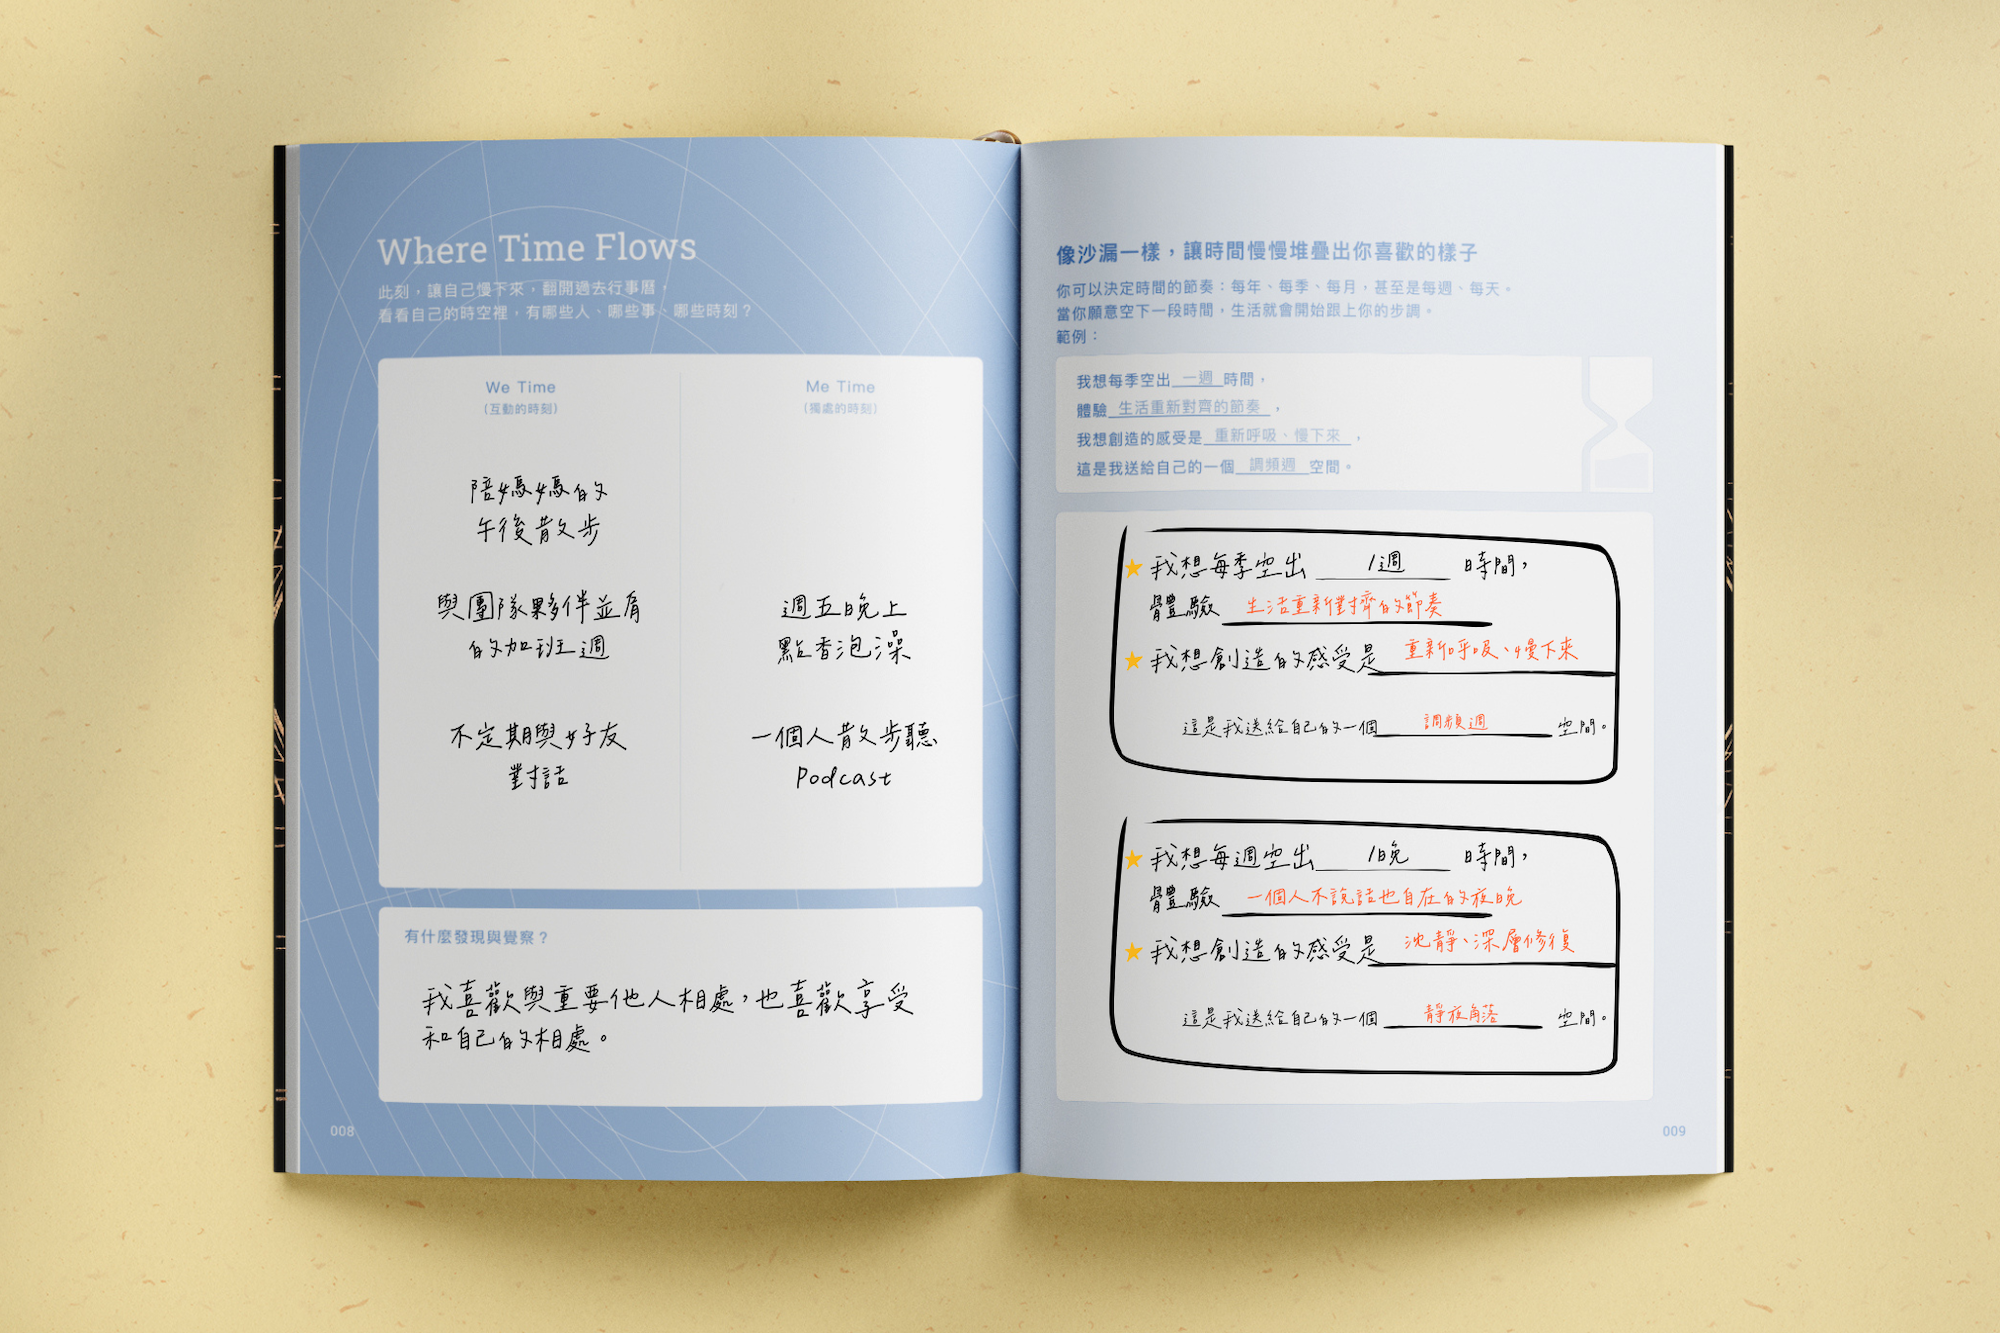 Where Time Flows
此刻，讓自己慢下來，翻開過去行事曆，
看看自己的時空裡，有哪些人、哪些事、哪些時刻？
We Time
（互動的時刻）
陪媽媽的
午後散步
與團隊夥伴並肩
的加班週
不定期與好友
對話
Me Time
（獨處的時刻）
週五晚上
點香泡澡
一個人散步聽
Podcast
有什麼發現與覺察？
我喜歡與重要他人相處，也喜歡享受
和自己的相處。
008
像沙漏一樣，讓時間慢慢堆疊出你喜歡的樣子
你可以決定時間的節奏：每年、每季、每月，甚至是每週、每天。
當你願意空下一段時間，生活就會開始跟上你的步調。
範例：
我想每季空出 一週 時間，
體驗 生活重新對齊的節奏 ，
我想創造的感受是 重新呼吸、慢下來 ，
這是我送給自己的一個 調頻週 空間。
我想每季空出 1週 時間，
體驗 生活重新對齊的節奏
我想創造的感受是 重新呼吸、慢下來
這是我送給自己的一個 調頻週 空間。
我想每週空出 1晚 時間，
體驗 一個人不說話也自在的夜晚
我想創造的感受是 沈靜、深層修復
這是我送給自己的一個 靜夜角落 空間。
009